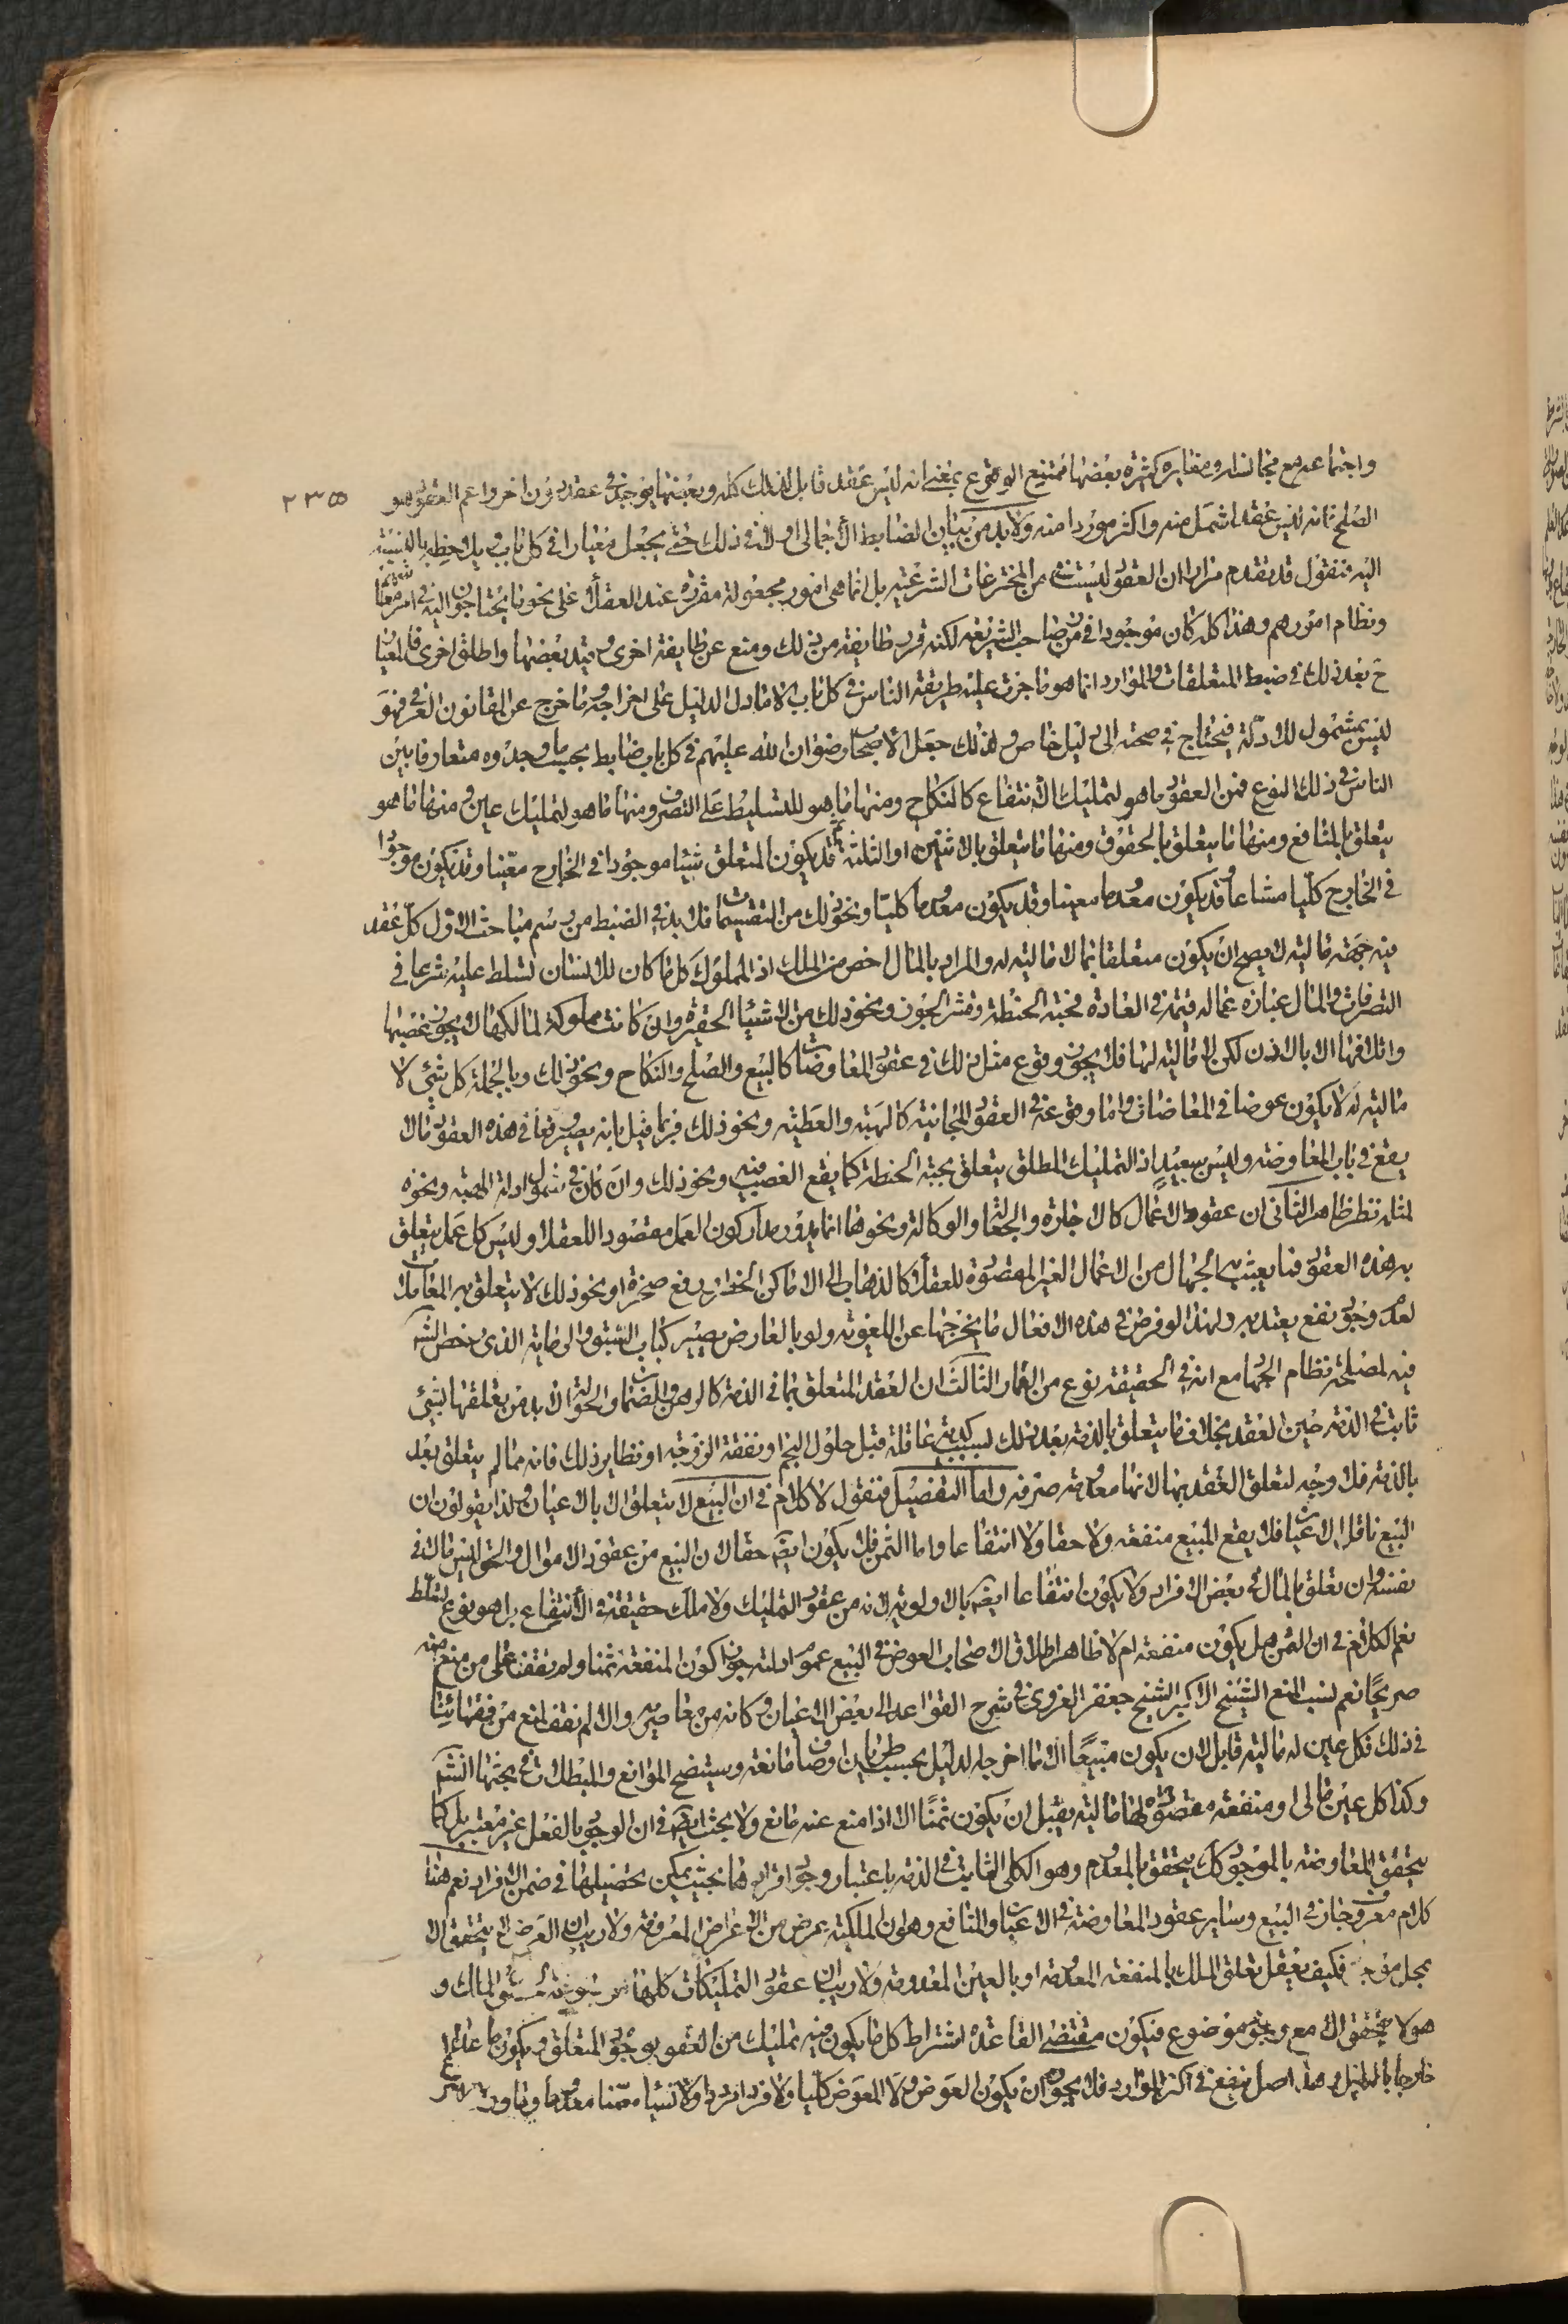 واجتماعه مع مجانسه ومغايره كثيرة بعضها ممتنع الوقوع بمعنى انه ليس عقد قابل لذلك كله وبعضها يوجد في عقد دون اخر واعم العقود هو
٢٣٥
الصلح فانه ليس عقد اشمل منه واكثر موردا منه ولا بد من بيان الضابط الاجمالى اولا في ذلك حتى يجعل معيارا في كل باب ويلاحظ بالنسبة
اليه فنقول قد تقدم مرارا ان العقود ليست من المخترعات الشرعية بل انما هى امور مجعولة مقررة عند العقلاء على نحو ما يحتاجون اليه في امر معاشهم
ونظام امورهم وهذا كله كان موجودا في زمن صاحب الشريعة لكنه قرر طايفة من ذلك ومنع عن طايفة اخرى وقيد بعضها واطلق اخرى فالمعيار
ح بعد ذلك في ضبط المتعلقات والموارد انما هو ما جرت عليه طريقة الناس في كل باب الا ما دل الدليل على اخراجه وما خرج عن القانون العرفي فهو
ليس بمشمول للادلة فيحتاج في صحته الى دليل خاص ولذلك جعل الاصحاب رضوان الله عليهم في كل باب ضابط بحسب ما وجدوه متعارفا بين
الناس في ذلك النوع فمن العقود ما هو لتمليك الانتفاع كالنكاح ومنها ما هو للتسليط على التصرف ومنها ما هو لتمليك عين ومنها ما هو
يتعلق بالمنافع ومنها ما يتعلق بالحقوق ومنها ما يتعلق بالاثنين او الثلثة ثم قد يكون المتعلق شيئا موجودا في الخارج معينا وقد يكون موجودا
في الخارج كليا مشاعا وقد يكون معدوما معينا وقد يكون معدوما كليا ونحو ذلك من التقسيمات فلا بد في الضبط من رسم مباحث الاول كل عقد
فيه جهة مالية لا يصح ان يكون متعلقا بما لا مالية له والمراد بالمال اخص من الملك اذ المملوك كل ما كان للانسان تسلط عليه شرعا في
التصرفات والمال عبارة عما له قيمة في العادة فحبة الحنطة وقشر الجوز ونحو ذلك من الاشياء الحقيرة وان كانت مملوكة لمالكها لا يجوز غصبها
واتلافها الا بالاذن لكن لا مالية لها فلا يجوز وقوع مثل ذلك في عقود المعاوضات كالبيع والصلح والنكاح ونحو ذلك وبالجملة كل شئ لا
مالية له لا يكون عوضا في المعاوضات واما وقوعه في العقود المجانية كالهبة والعطية ونحو ذلك فربما قيل بانه يصير تبعا في هذه العقود مالا
يقع في باب المعاوضة وليس ببعيد اذ التمليك المطلق يتعلق بحبة الحنطة كما يقع الغصب فيه ونحو ذلك وان كان في شمول ادلة الهبة ونحوه
لمثله نظر ظاهر الثانى ان عقود الاعمال كالاجارة والجعالة والوكالة ونحوها انما يدور مدار كون العمل مقصودا للعقلاء وليس كل عمل يتعلق
به هذه العقود فما يعبث به الجهال من الاعمال الغير المقصودة للعقلاء كالذهاب الى الاماكن الخطرة ورفع صخرة او نحو ذلك لا يتعلق به المعاملات
لعدم وجود نفع يعتد به ولهذا لو فرض في هذه الافعال ما يخرجها عن اللغوية ولو بالعارض يصير كباب السبق والرماية الذى رخص الشرع
فيه لمصلحة نظام الجهاد مع انه في الحقيقة نوع من القمار الثالث ان العقد المتعلق بما في الذمة كالرهن والضمان والحوالة لا بد من تعلقها بشئ
ثابت في الذمة حين العقد بخلاف ما يتعلق بالذمة بعد ذلك لسبب كدية عاقلة قبل حلول النجم او نفقة الزوجة او نظاير ذلك فانه مما لم يتعلق بعد
بالذمة فلا وجه لتعلق العقد بها لانها معدومة صرفة واما التفصيل فنقول لا كلام في ان البيع لا يتعلق الا بالاعيان ولذا يقولون ان
البيع ناقل الاعيان فلا يقع المبيع منفعة ولا حقا ولا انتفاعا واما الثمن فلا يكون ايضا حقا لان البيع من عقود الاموال والحق ليس مالا في
نفسه وان تعلق بالمال في بعض الافراد ولا يكون انتفاعا ايضا بالاولوية لانه من عقود التمليك ولا ملك حقيقة في الانتفاع بل هو نوع تسلط
نعم الكلام في ان الثمن هل يكون منفعة ام لا ظاهر اطلاق الاصحاب العوض في البيع وعموم ادلته جواز كون المنفعة ثمنا ولم نقف على من منع منه
صريحا نعم نسب المنع الشيخ الاكبر الشيخ جعفر الغروى في شرح القواعد الى بعض الاعيان وكانه من معاصريه والا لم نقف على مانع من فقهائنا
في ذلك فكل عين له مالية قابل لان يكون مبيعا الا ما اخرجه الدليل بحسب طريان اوصاف مانعة وسيتضح الموانع والمبطلات في بحثها انشاء الله
وكذا كل عين مالى او منفعة مقصودة لها مالية يقبل ان يكون ثمنا الا اذا منع عنه مانع ولا بحث ايضا في ان الوجود بالفعل غير معتبر بل كما
يتحقق المعاوضة بالموجود كذلك يتحقق بالمعدوم وهو الكلى الثابت في الذمة باعتبار وجود افراد ها بحيث يمكن تحصيلها في ضمن الافراد نعم هنا
كلام معروف جار في البيع وساير عقود المعاوضة في الاعيان والمنافع وهو ان الملكية عرض من الاعراض المعروفة ولا ريب ان العرض لا يتحقق الا
بمحل موجود فكيف يعقل تعلق الملك بالمنفعة المعدومة او بالعين المعدومة ولا ريب ان عقود التمليكات كلها الملك و
هو لا يتحقق الا مع وجود موضوع فيكون مقتضى القاعدة اشتراط كل ما يكون فيه تمليك من العقود بوجود المتعلق ويكون ما عداه
خارجا بالدليل وهذا اصل ينفع في اكثر الموارد فلا يجوز ان يكون العوض ولا المعوض كليا ولا فردا مرددا ولا شيئا معينا معدوما